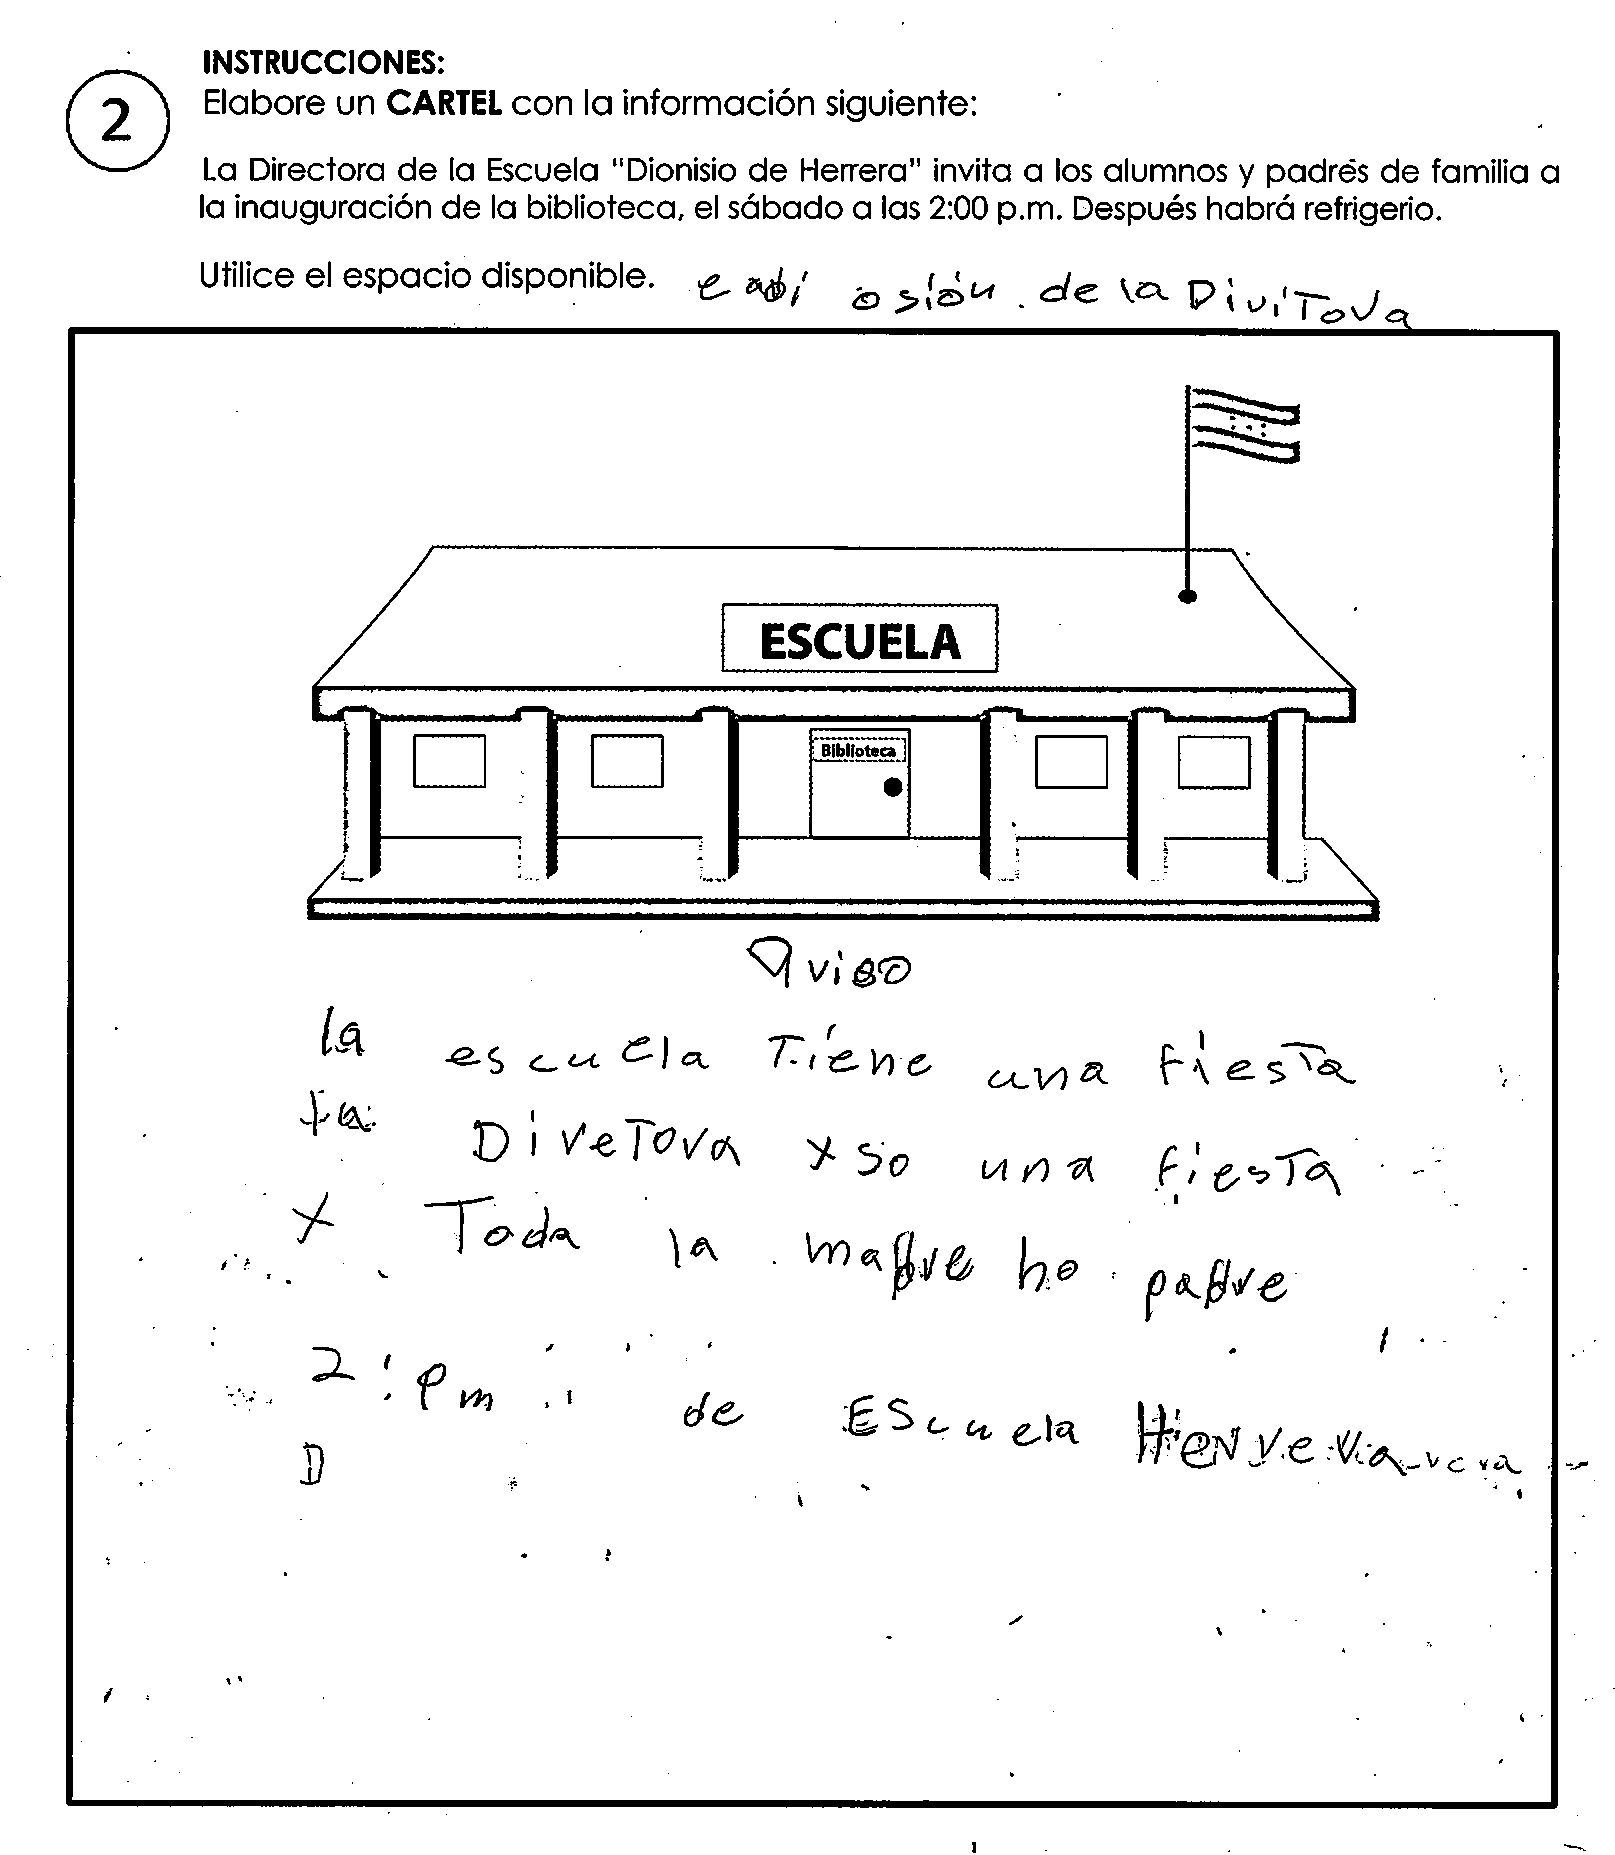 INSTRUCCIONES:
2
Elabore un CARTEL con la información siguiente:
La Directora de la Escuela "Dionisio de Herrera" invita a los alumnos y padrés de familia a
la inauguración de la biblioteca, el sábado a las 2:00 p.m. Después habrá refrigerio.
Utilice el espacio disponible.
osión de la DiviTova
ESCUELA
Biblioteca
Aviso
la escuela Tiene una fiesTa
la DiveTova xso una fiesTa
x Toda la madre ho padre
2:pm de EScuela
D